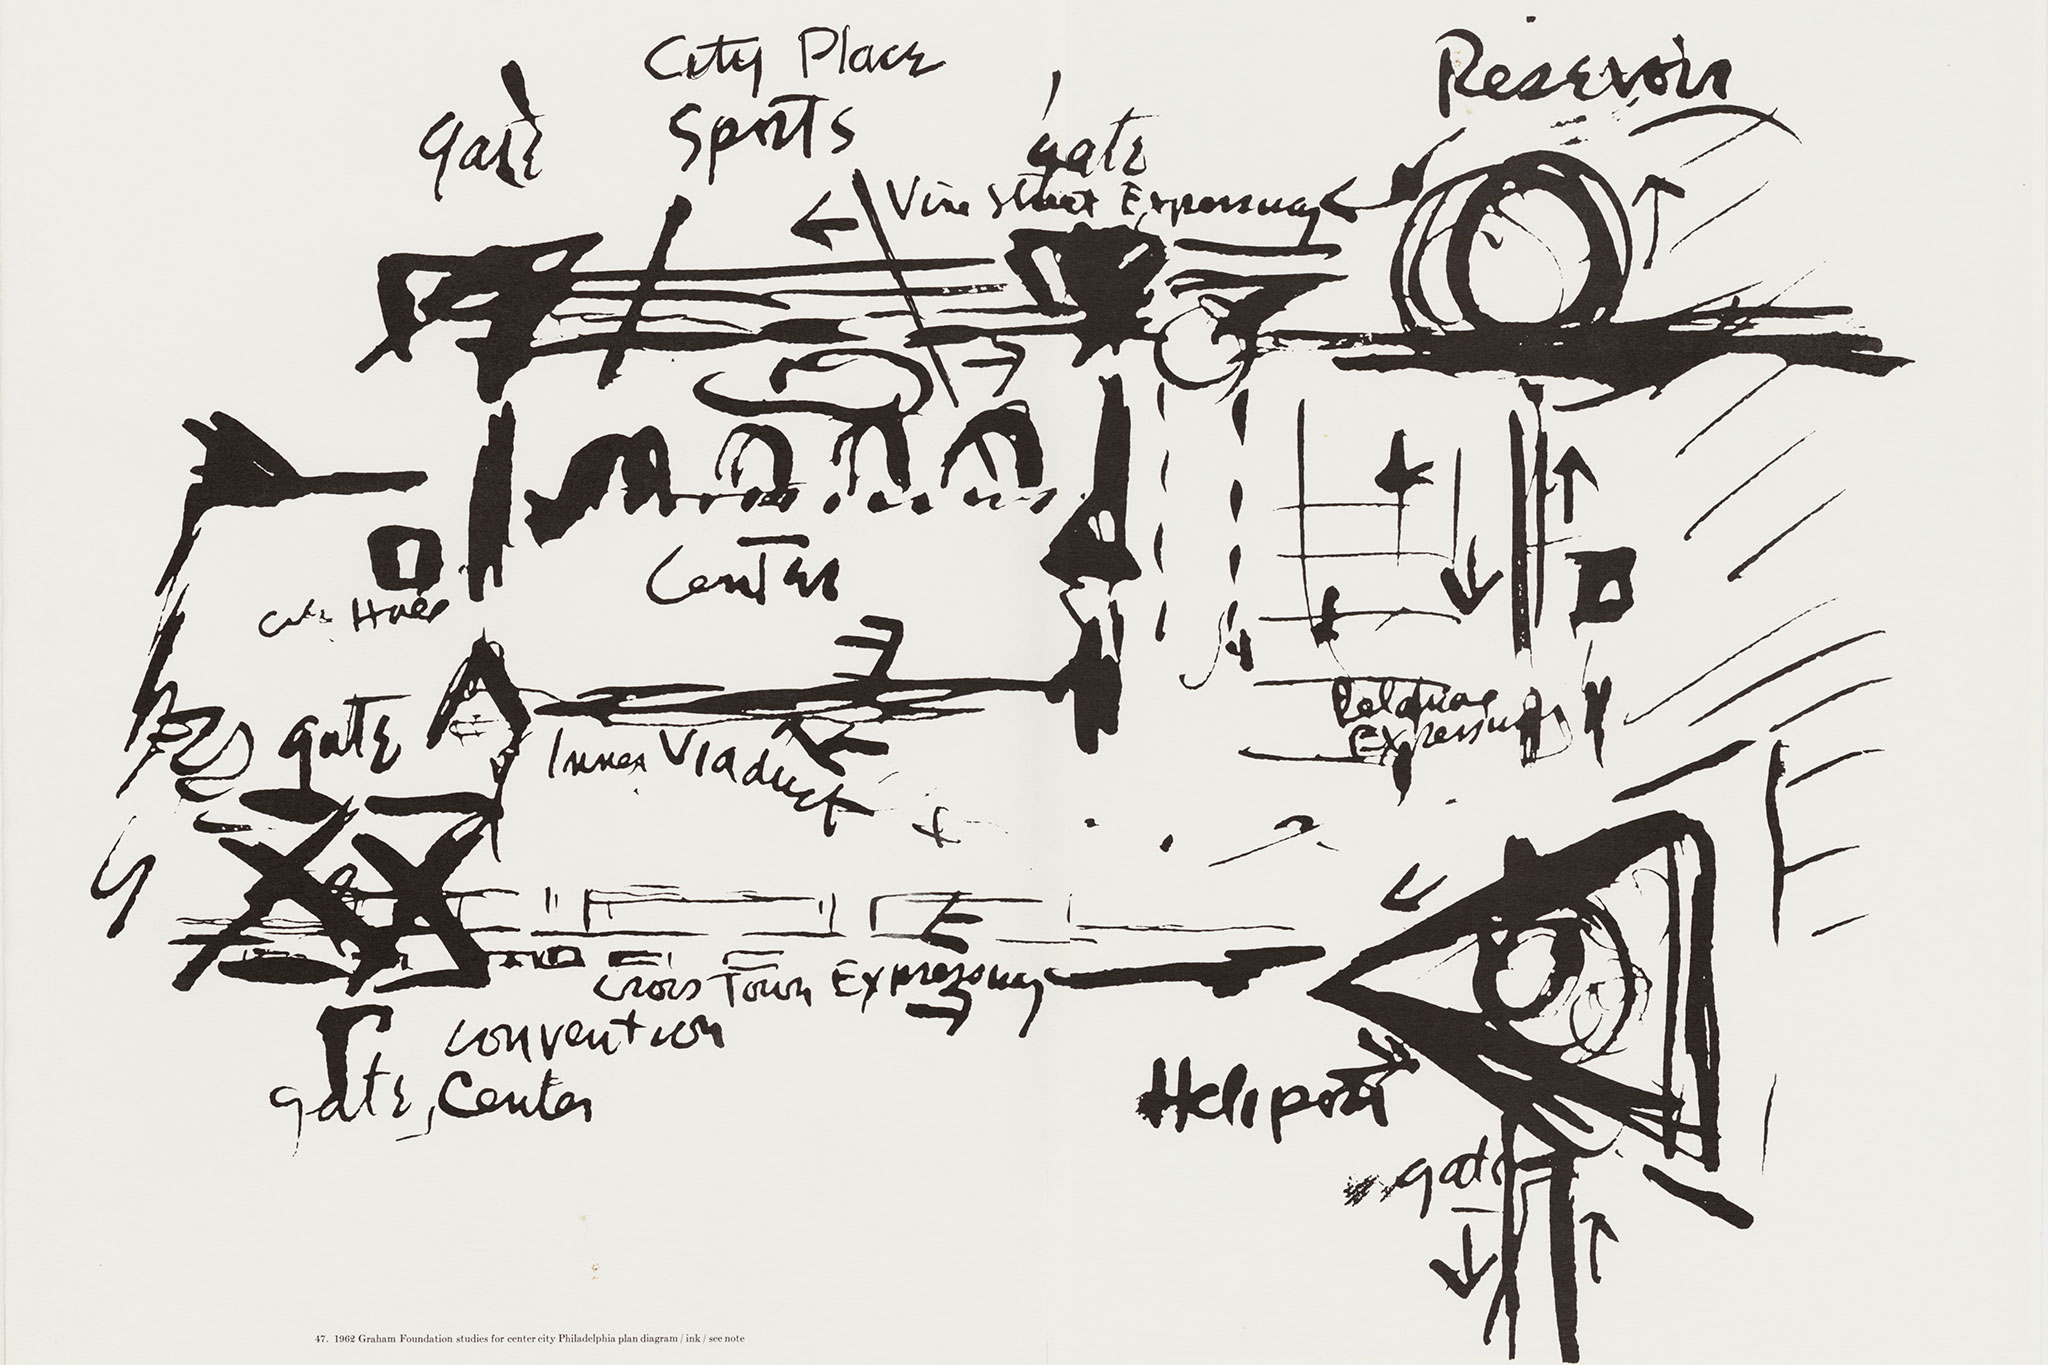 City Place
Sports
gate
gate
Reservoir
Vine Street Expressway
Center
City Hall
gate
Inner Viaduct
Delaware
Expressway
Cross Town Expressway
convention
gate, Center
Heliport
gate
47. 1962 Graham Foundation studies for center city Philadelphia plan diagram / ink / see note